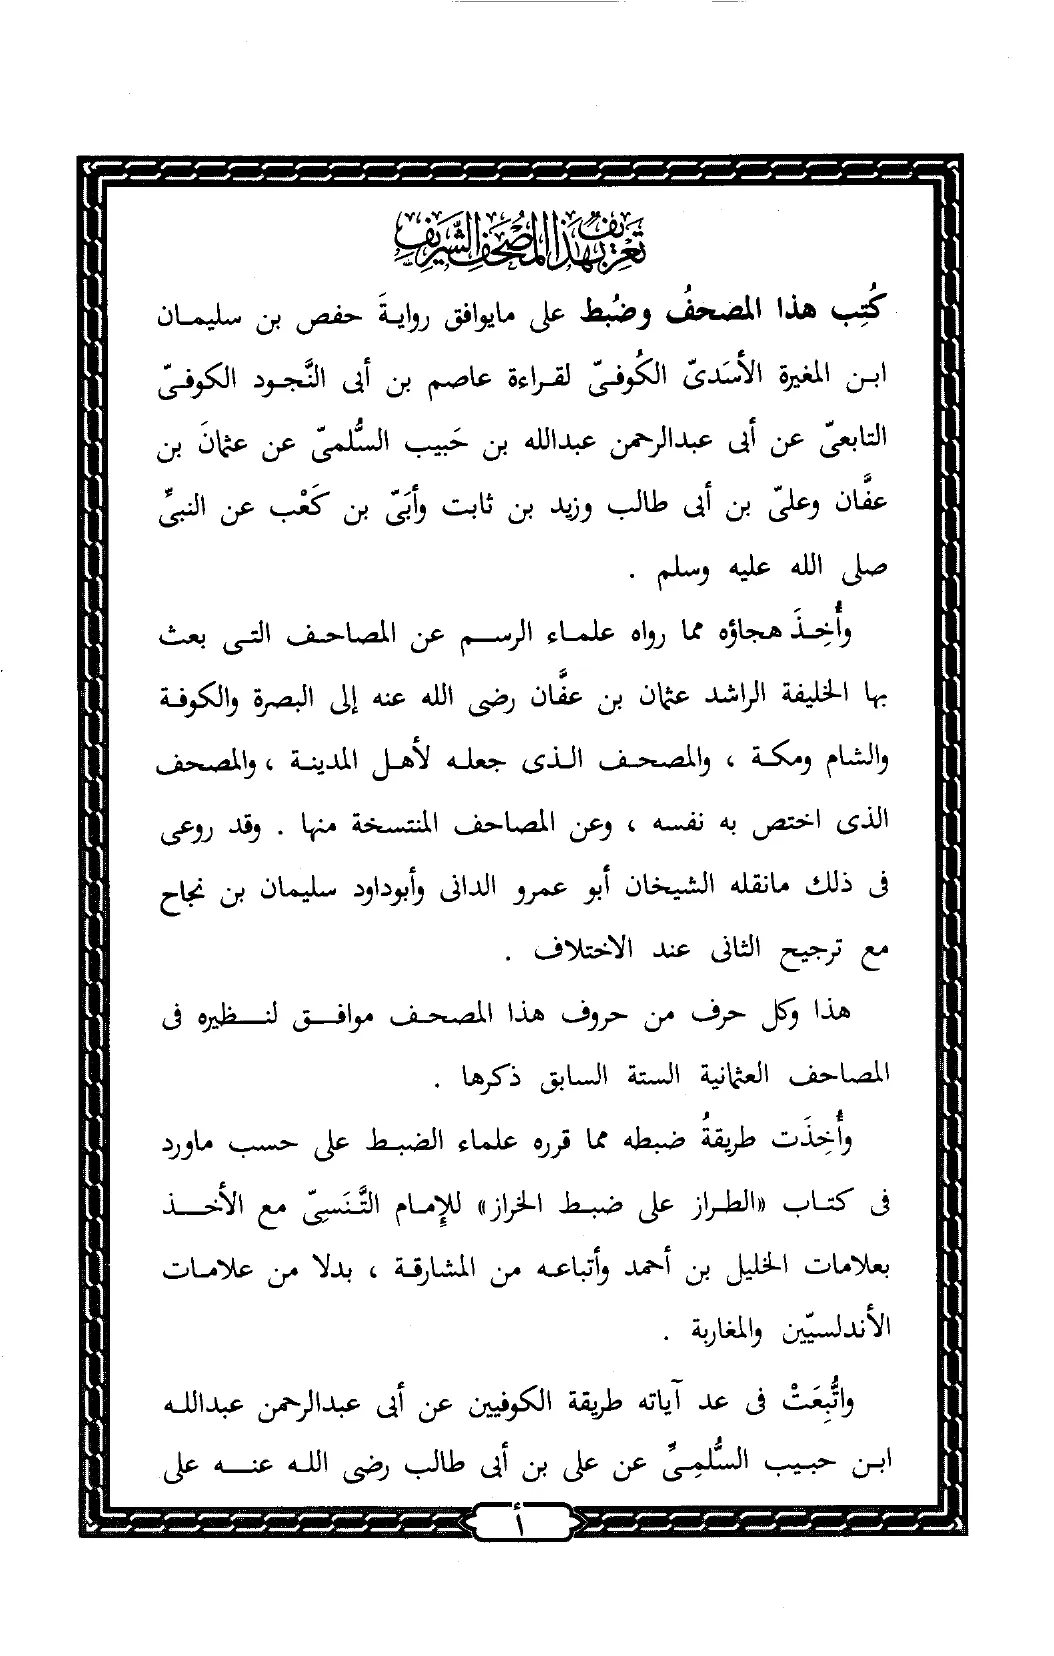 تعريف بهذا المصحف الشريف
كُتِب هذا المصحفُ وضُبط على مايوافق روايةَ حفص بن سليمان
ابن المغيرة الأسَدىّ الكُوفىّ لقراءة عاصم بن أبى النَّجود الكوفىّ
التابعىّ عن أبى عبدالرحمن عبدالله بن حَبيب السُّلمىّ عن عثمانَ بن
عفَّان وعلىّ بن أبى طالب وزيد بن ثابت وأبَىّ بن كَعْب عن النبىِّ
صلى الله عليه وسلم .
وأُخِذَ هجاؤه مما رواه علماء الرسم عن المصاحف التى بعث
بها الخليفة الراشد عثمان بن عفَّان رضى الله عنه إلى البصرة والكوفة
والشام ومكة ، والمصحف الذى جعله لأهل المدينة ، والمصحف
الذى اختص به نفسه ، وعن المصاحف المنتسخة منها . وقد روعى
فى ذلك مانقله الشيخان أبو عمرو الدانى وأبوداود سليمان بن نجاح
مع ترجيح الثانى عند الاختلاف .
هذا وكل حرف من حروف هذا المصحف موافق لنظيره فى
المصاحف العثمانية الستة السابق ذكرها .
وأُخِذَت طريقةُ ضبطه مما قرره علماء الضبط على حسب ماورد
فى كتاب «الطراز على ضبط الخراز» للإمام التَّنَسِىّ مع الأخذ
بعلامات الخليل بن أحمد وأتباعه من المشارقة ، بدلا من علامات
الأندلسيّين والمغاربة .
واتُّبِعَتْ فى عد آياته طريقة الكوفيين عن أبى عبدالرحمن عبدالله
ابن حبيب السُّلمِىِّ عن على بن أبى طالب رضى الله عنه على
أ